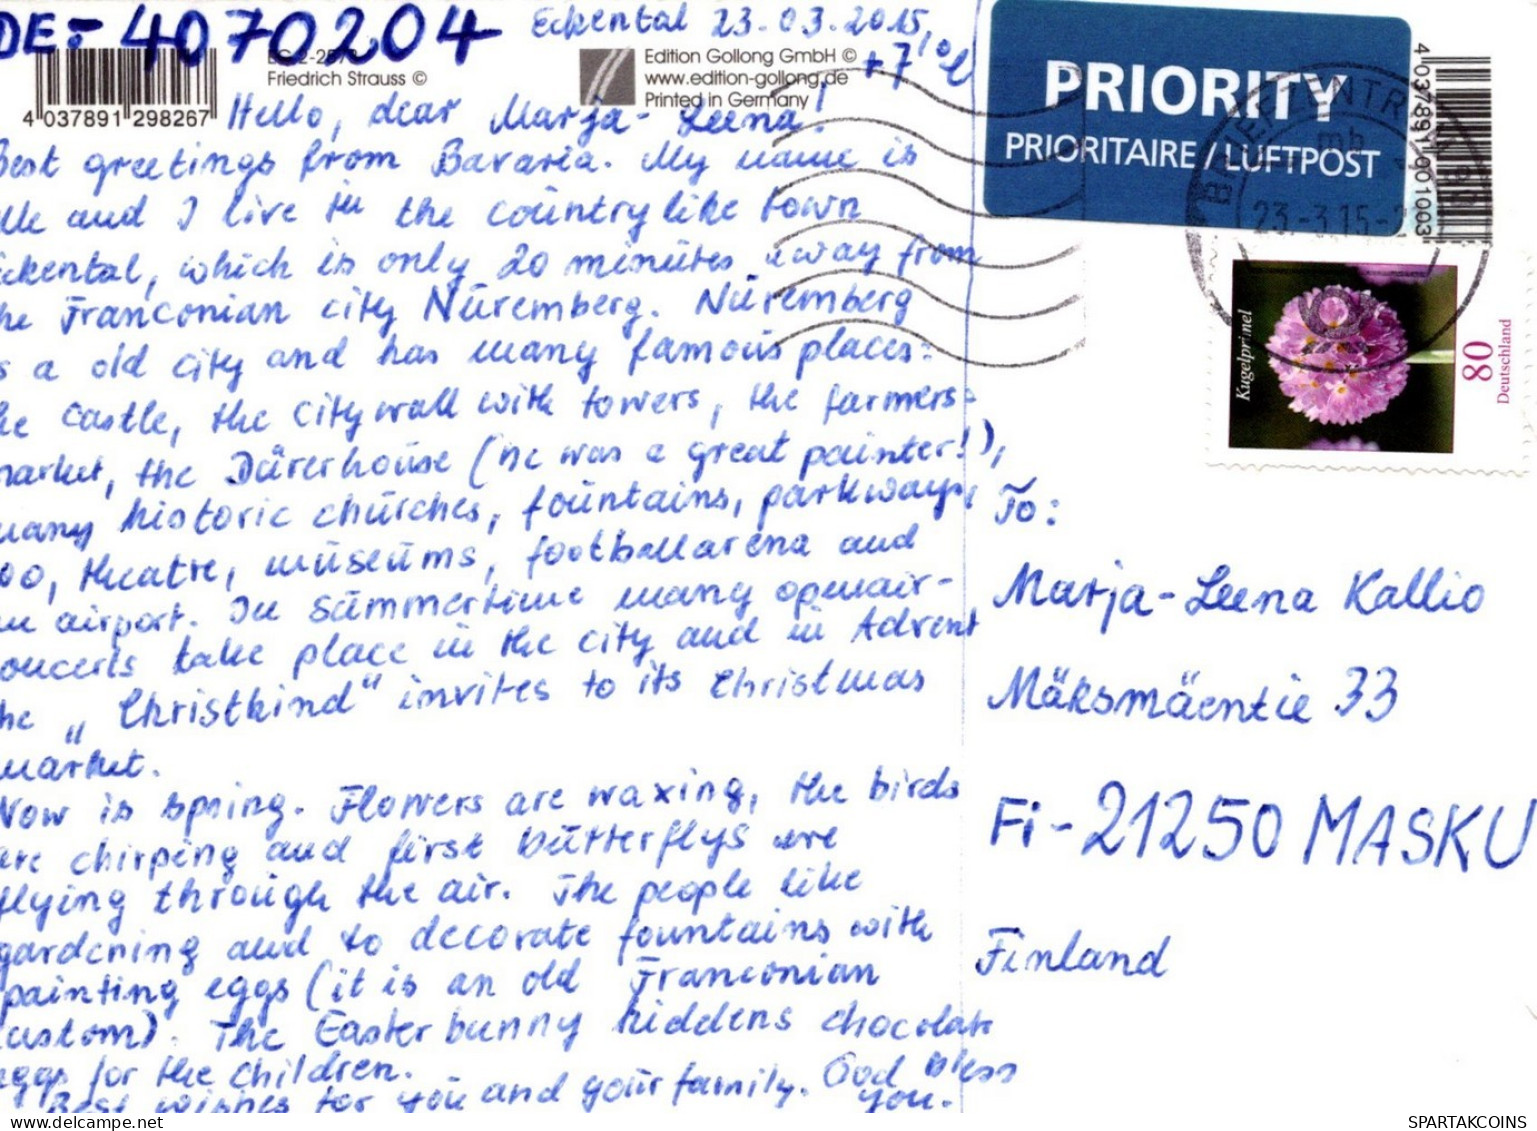 DE-4070204
Eckental 23.03.2015,
+7°C
BC 2-287
Friedrich Strauss ©
Edition Gollong GmbH ©
www.edition-gollong.de
Printed in Germany
4 037891 298267
Hello, dear Marja-Leena!
Best greetings from Bavaria. My name is
and I live in the countrylike town
Eckental, which is only 20 minutes away from
the Franconian city Nuremberg. Nuremberg
is a old city and has many famous places:
the castle, the citywall with towers, the farmers-
market, the Dürerhouse (he was a great painter!),
many historic churches, fountains, parkways,
zoo, theatre, museums, footballarena and
an airport. In summertime many openair-
concerts take place in the city and in Advent
the „Christkind“ invites to its Christmas
market.
Now is spring. Flowers are waxing, the birds
are chirping and first butterflys are
flying through the air. The people like
gardening and to decorate fountains with
painting eggs (it is an old Franconian
custom). The Easterbunny hiddens chocolate
eggs for the children.
Best wishes for you and your family. God bless
you.
PRIORITY
PRIORITAIRE / LUFTPOST
4 037891 001003
BRIEFZENTRUM
mb
23.-3.15-
Kugelprimel
80
Deutschland
To:
Marja-Leena Kallio
Mäksmäentie 33
Fi-21250 MASKU
Finland
SPARTAKCOINS
https://www.delcampe.net